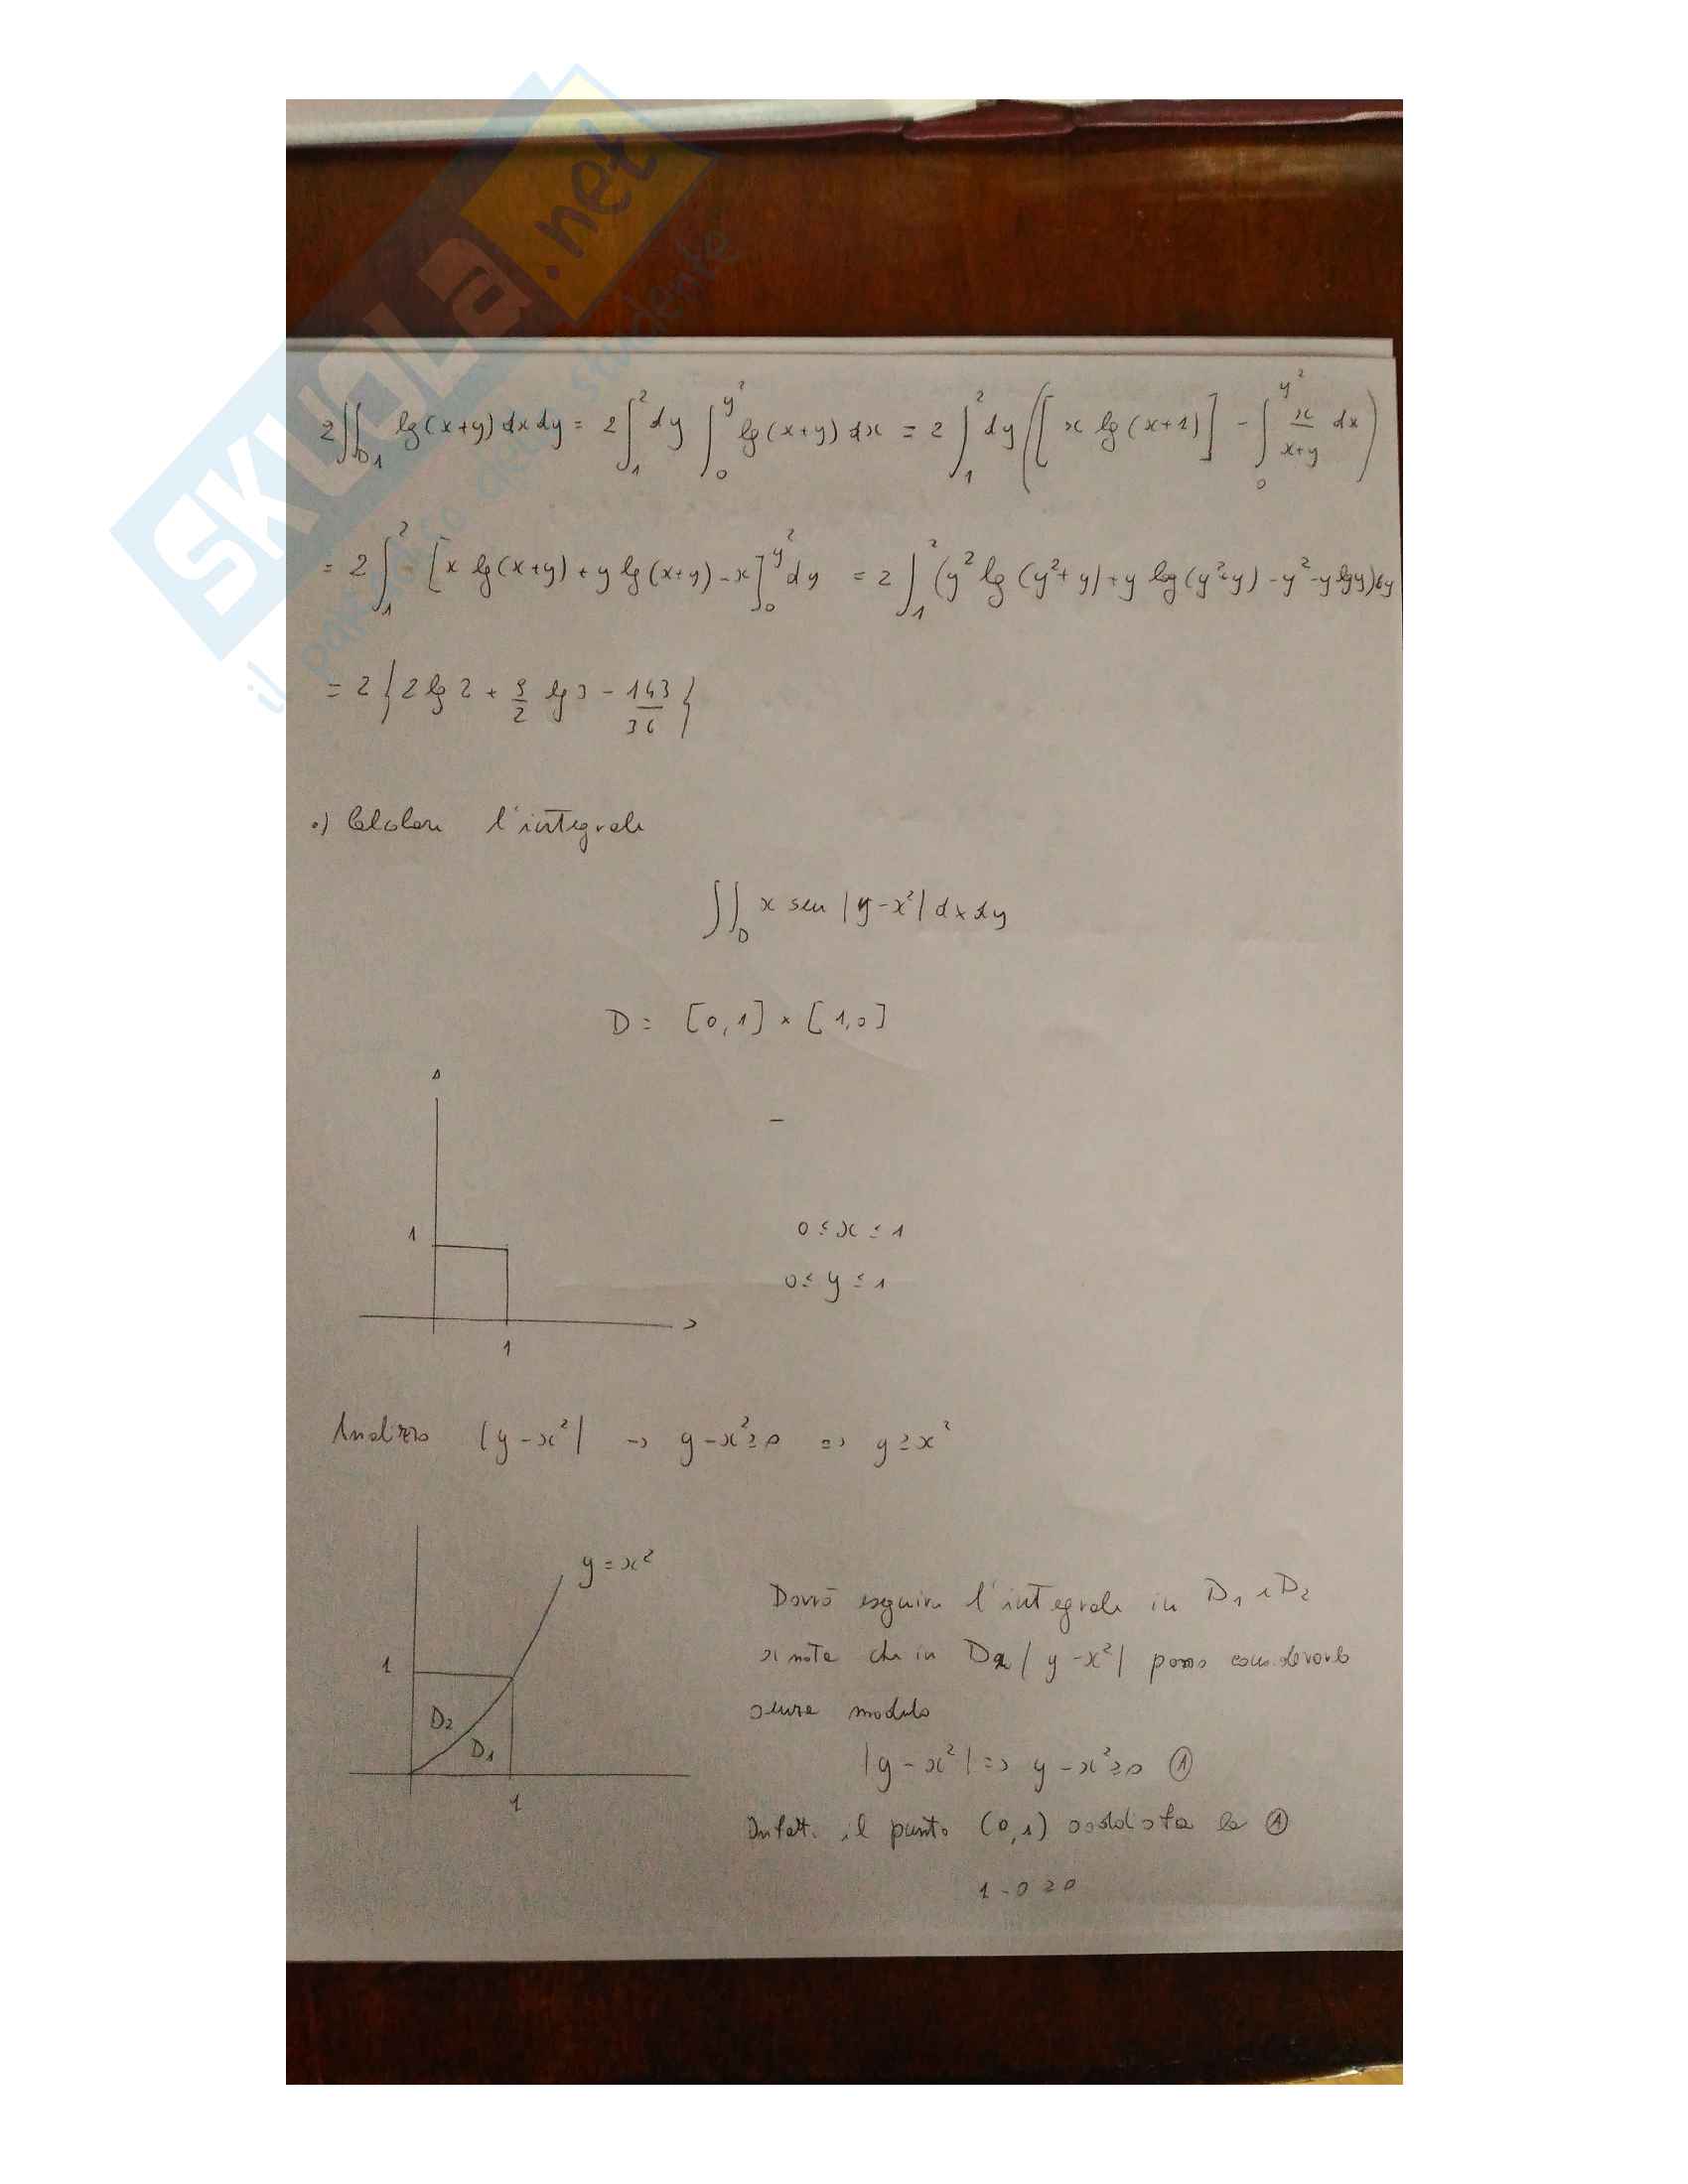 SKUOLA.net
il paradiso dello studente
2∬_D1 lg(x+y) dx dy = 2∫_1^2 dy ∫_0^{y²} lg(x+y) dx = 2∫_1^2 dy ([x lg(x+1)] - ∫_0^{y²} x/(x+y) dx)
= 2∫_1^2 [x lg(x+y) + y lg(x+y) - x]_0^{y²} dy = 2∫_1^2 (y² lg(y²+y) + y log(y²+y) - y² - y lg y) dy
= 2{2 lg 2 + 9/2 lg 3 - 143/36}
•) Calcolare l'integrale
∬_D x sen |y-x²| dx dy
D = [0,1] × [1,0]
1
0 ≤ x ≤ 1
0 ≤ y ≤ 1
1
Analizzo |y-x²| → y-x² ≥ 0 => y ≥ x²
y = x²
1
D2
D1
1
Dovrò eseguire l'integrale in D1 e D2
si nota che in D2 |y-x²| posso considerarlo
senza modulo
|y-x²| => y-x² ≥ 0 ①
Infatti il punto (0,1) soddisfa la ①
1-0 ≥ 0